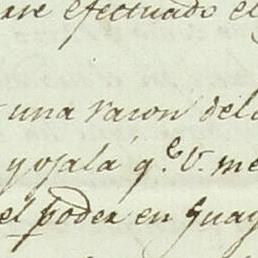 efectuado el
una racon del
y ojalá q.e V. me
el poder en Guay